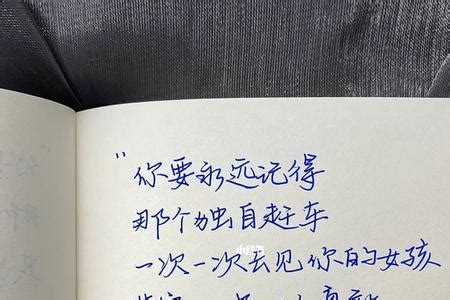 "你要永远记得
那个独自赶车
小红书
一次一次去见你的女孩